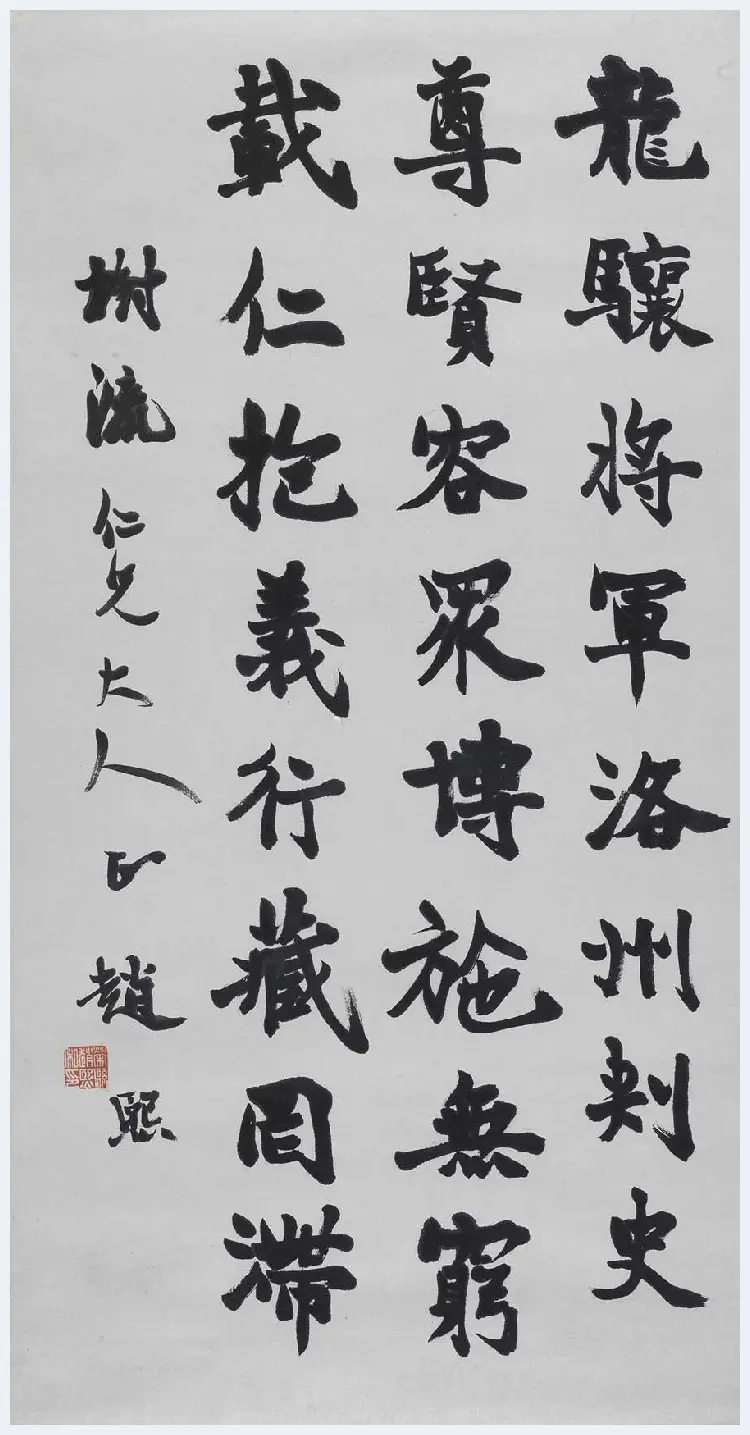 龍驤將軍洛州刺史
尊賢容眾博施無窮
載仁抱義行藏罔滯
流仁兄大人正 趙熙